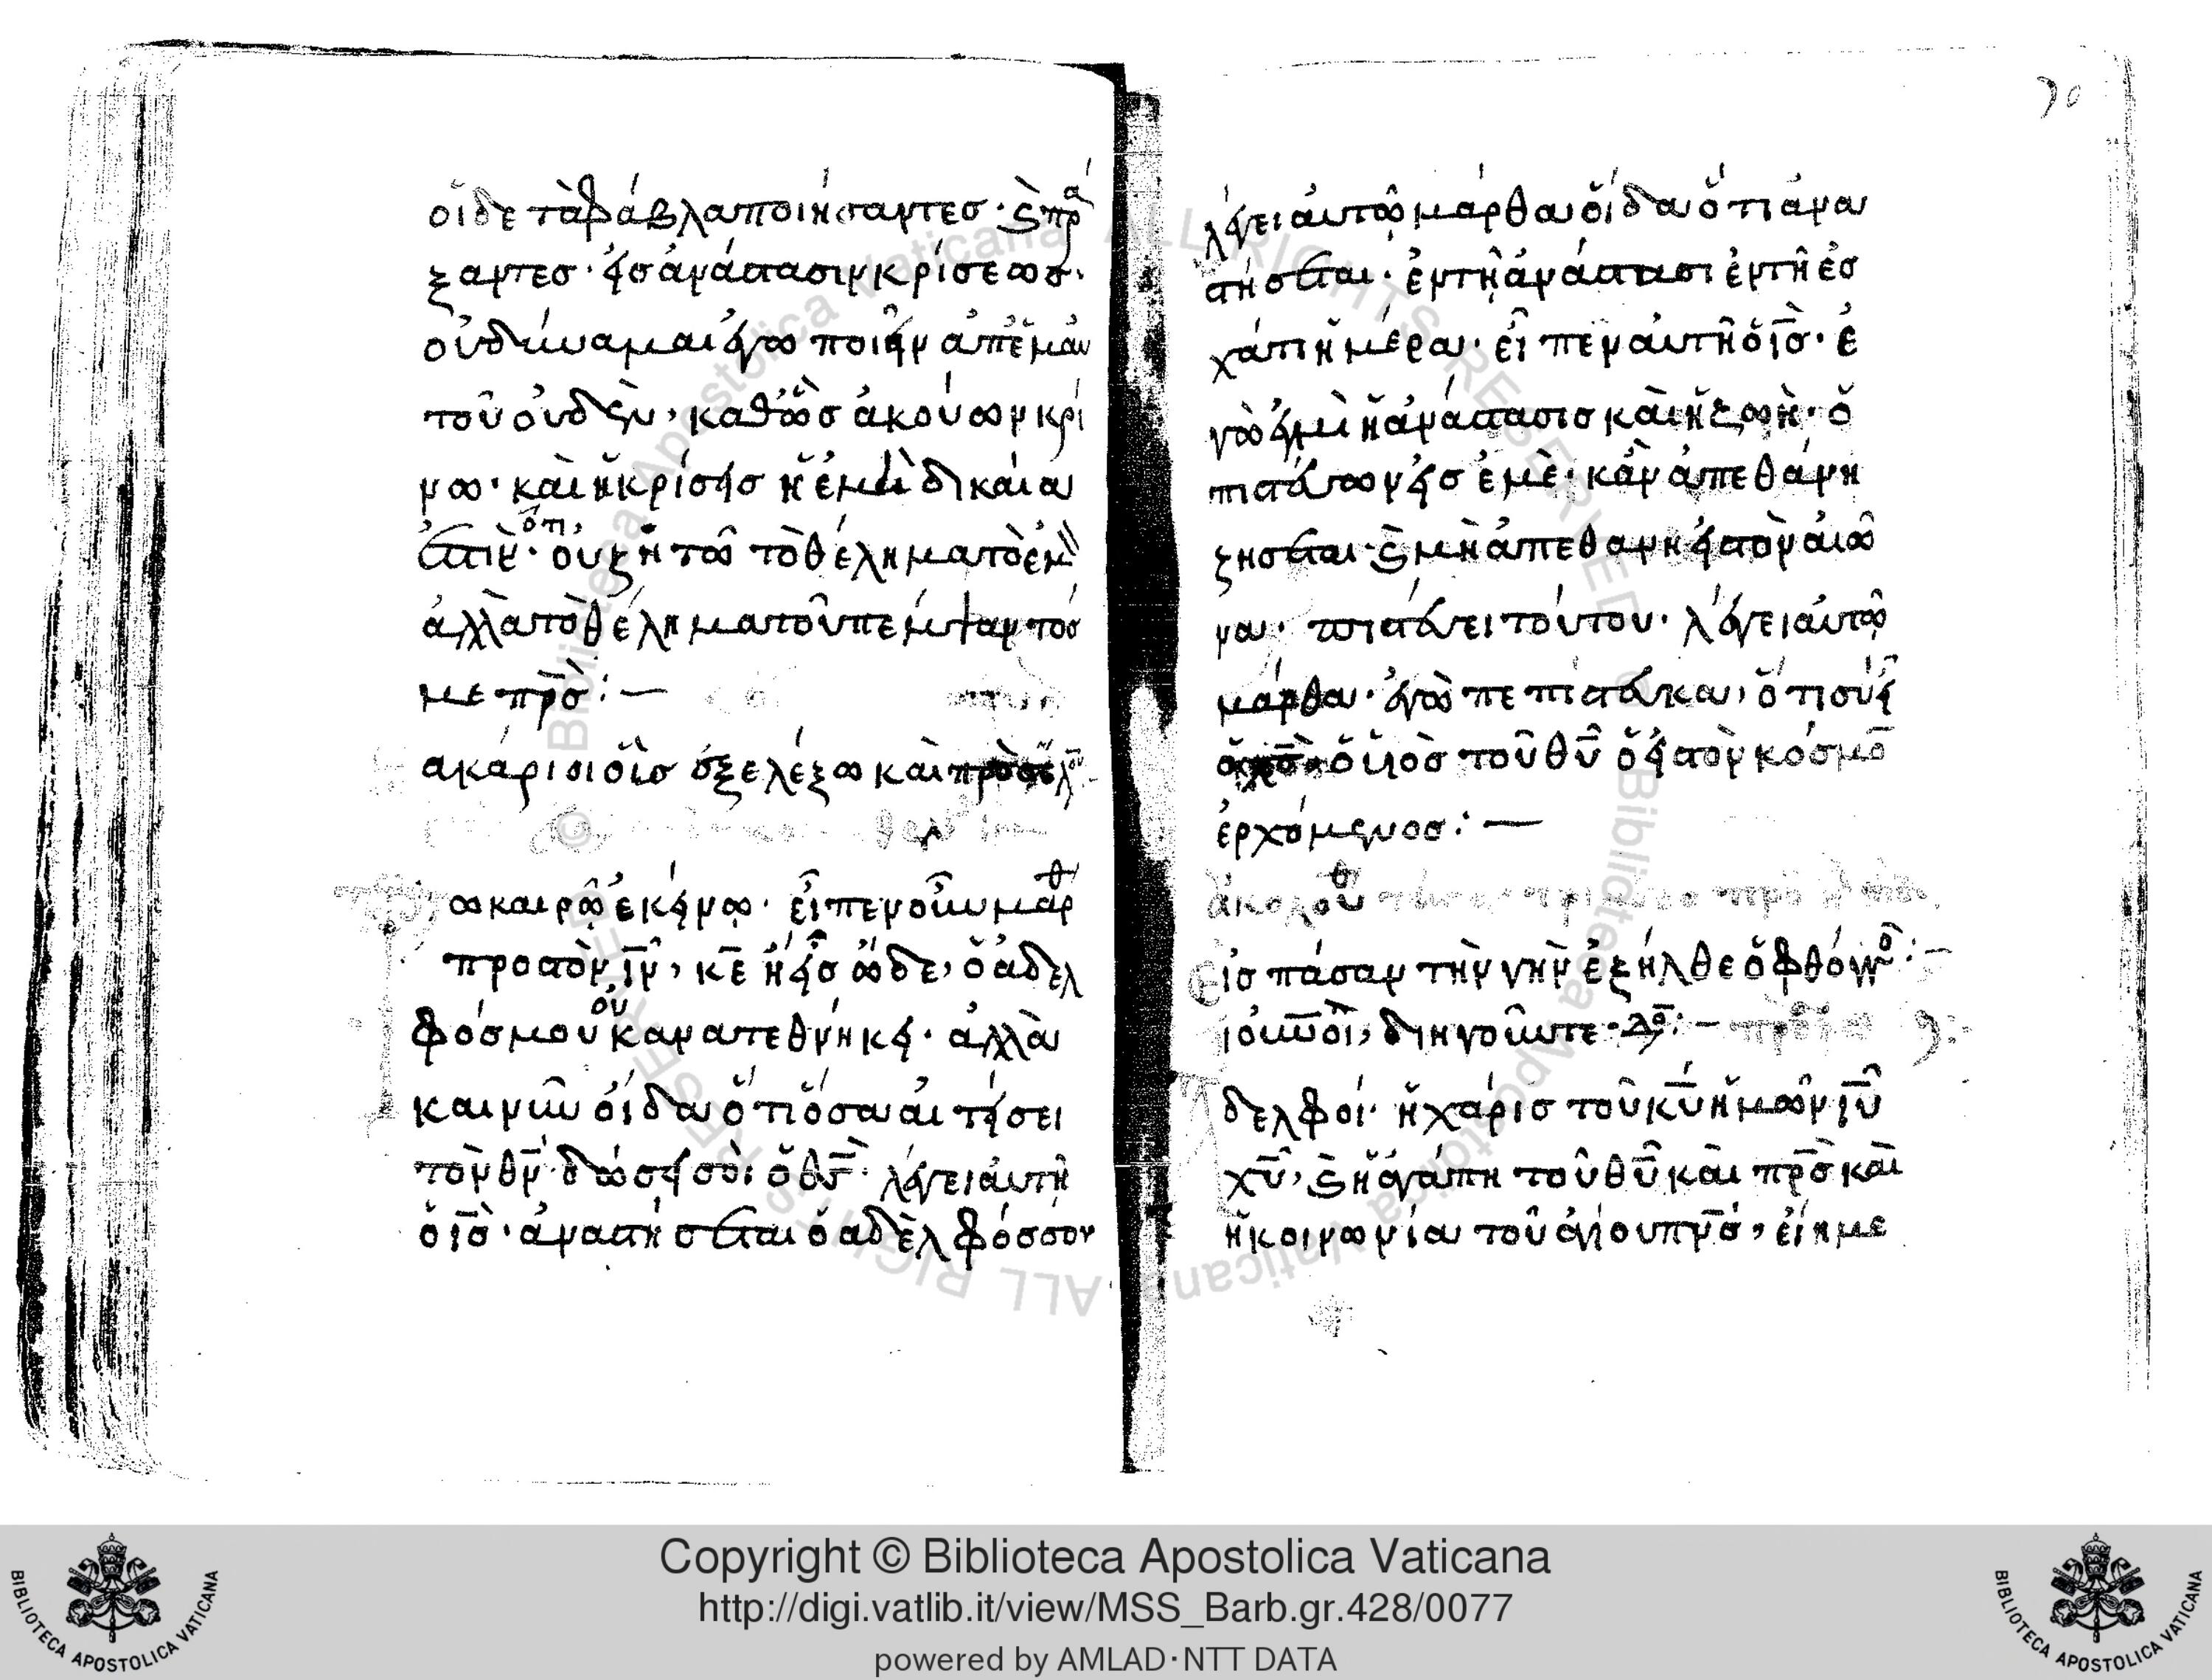 οἵδε τὰ φάβλα ποιήσαντεσ· ϛ πρά
ξαντεσ· εἰσ ἀνάστασιν κρίσεωσ·
οὐ δύναμαι ἐγὼ ποιεῖν ἀπ ἐμαυ
τοῦ οὐδὲν, καθὼσ ἀκούων κρί
νω· καὶ ἡ κρίσησ ἡ ἐμὴ δικαία
ἐστιὲν· ὅτι, οὐ ζητῶ τὸ θέλημα τὸ ἐμὸ
ἀλλὰ τὸ θέλημα τοῦ πέμψαντοσ
με πρ̅σ:—
ακάριοι οἳσ ἐξελέξω καὶ προσελ
ω καιρῶ ἐκείνω· εἶπεν οὖν μαρθ
προσ τὸν ιν̅, κε̅ ἠ εἶσ ὧδε, ὁ ἀδελ
φόσ μου οὐκ αν απεθνήκει· ἀλλὰ
και νῦν οἶδα ὅτι ὅσα αι τήσει
τὸν θν̅ δώσει σοὶ ὁ θσ̅. λέγει αὐτῆ
ὁ ισ̅· ἀναστήσεται ὁ αδὲλφόσ σου
λέγει αὐτῶ μάρθα οἶδα ὅτι ἀνα
στήσεται· ἐν τῆ ἀναστασι ἐν τῆ ἐσ
χάτη ἡμέρα· εἶπεν αὐτῆ ὁ ισ̅· ἐ
γὼ εἰμὶ ἡ ἀνάστασισ καὶ ἡ ζωὴ· ὁ
πιστεύων εἰσ ἐμὲ· κἀν ἀπεθάνη
ζησεται ϛ μὴ ἀπεθανη εἰσ τὸν αἰῶ
να· πιστεύει τούτου· λέγει αὐτῶ
μάρθα· ἐγὼ πεπίστευκα, ὅτι σὺ εἶ
ὁ χσ̅ ὁ υἱὸσ τοῦ θυ̅ ὁ εἰσ τὸν κόσμο
ἐρχόμενοσ:—
ἀκολου
εἰσ πάσαν τὴν γὴν ἐξήλθε ὁ φθόγγο:—
ι οὐνοὶ, διηγοῦντε
δελφοί· ἡ χάρισ τοῦ κυ̅ ἡμῶν ιυ̅
χυ̅, ϛ ἡ ἀγάπη τοῦ θυ̅ καὶ πρ̅σ καὶ
ἡ κοινωνία τοῦ ἁγίου πνσ̅, εἴη με
Copyright © Biblioteca Apostolica Vaticana
http://digi.vatlib.it/view/MSS_Barb.gr.428/0077
powered by AMLAD·NTT DATA
BIBLIOTECA APOSTOLICA VATICANA
BIBLIOTECA APOSTOLICA VATICANA